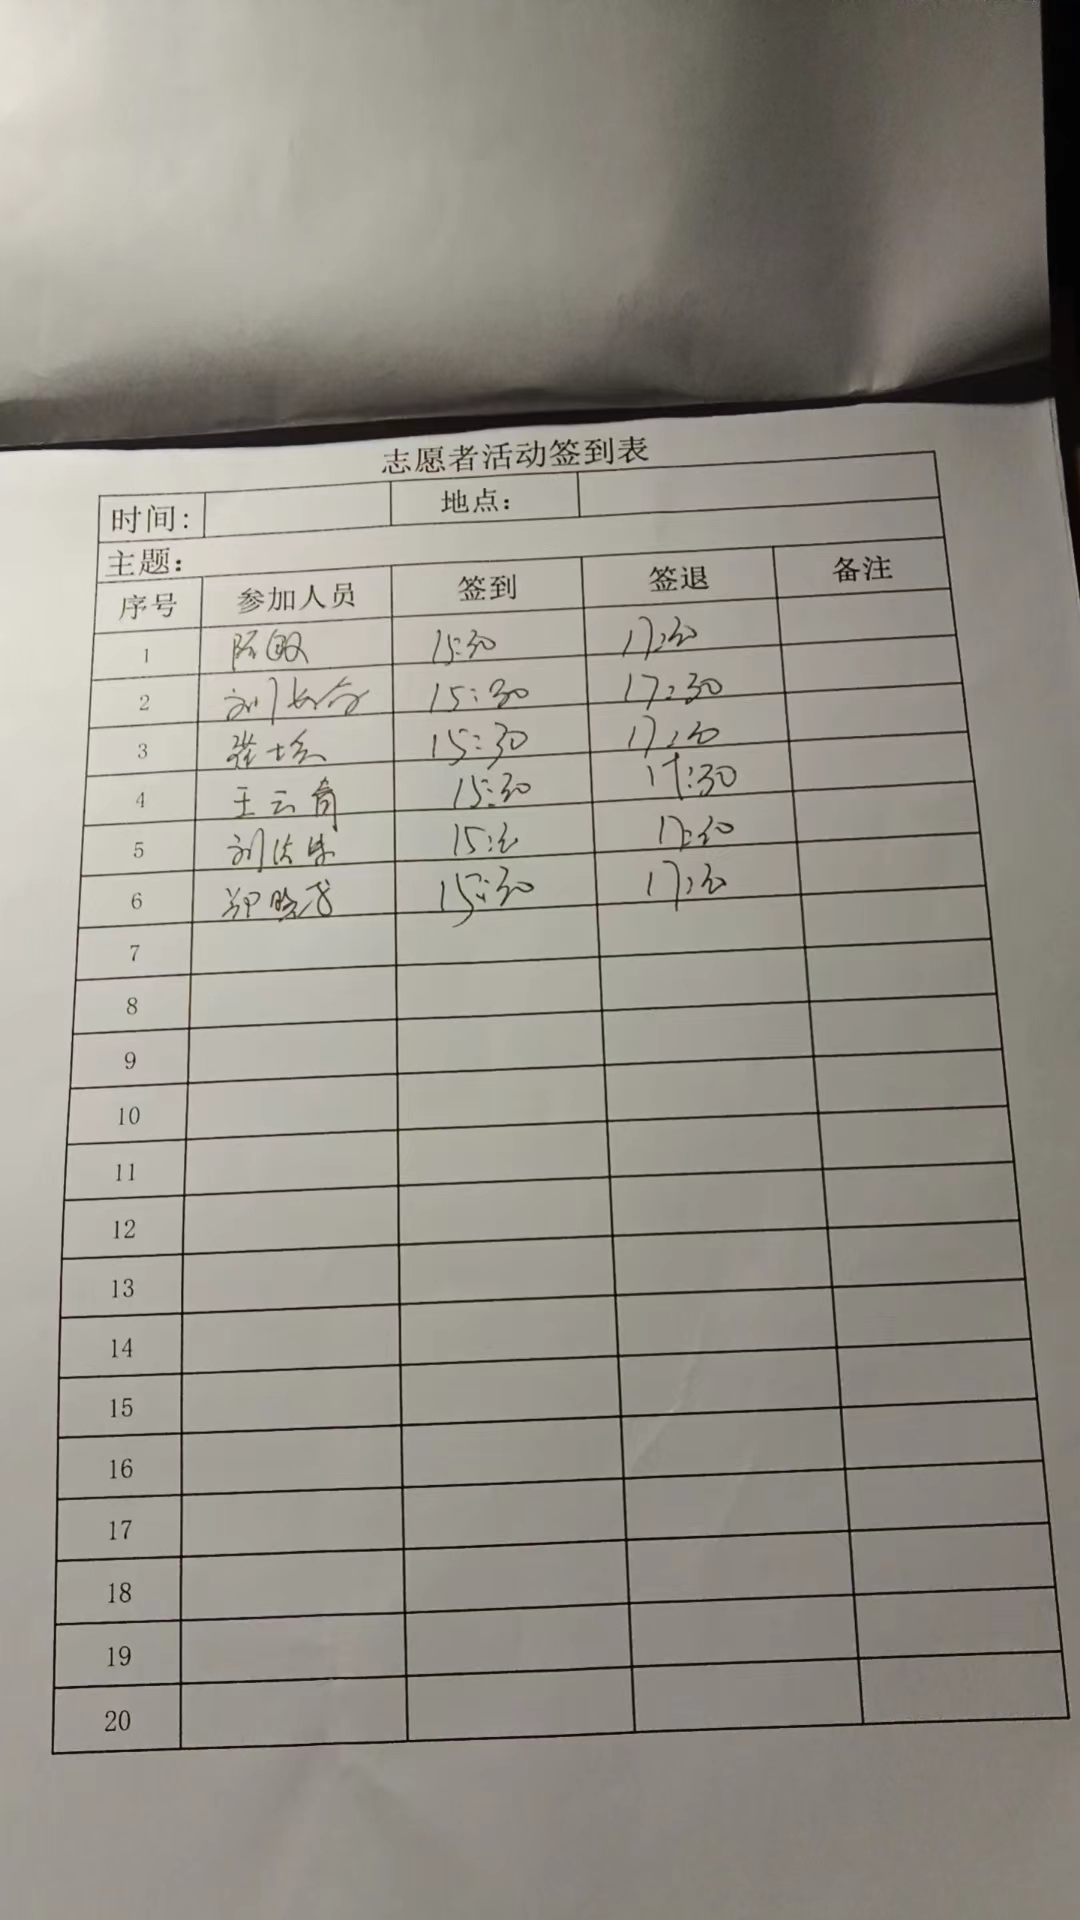 志愿者活动签到表
时间: 地点:
主题:
序号 参加人员 签到 签退 备注
1 陈敏 15:30 17:30
2 15:30 17:30
3 15:30 17:30
4 王云奇 15:30 17:30
5 15:30 17:30
6 郑晓 15:30 17:30
7
8
9
10
11
12
13
14
15
16
17
18
19
20